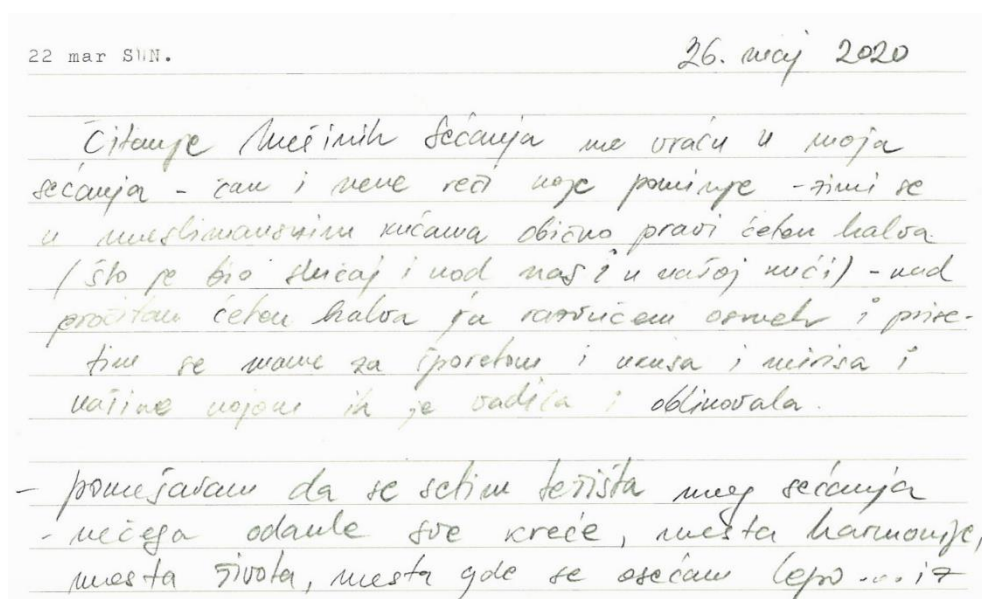 22 mar SUN.
26. maj 2020
Čitanje Mešinih sećanja me vraća u moja
sećanja - čak i neke reči koje pominje - zimi se
u muslimanskim kućama obično pravi ćeten halva
(što je bio slučaj i kod nas i u našoj kući) - kad
pročitam ćeten halva ja razvučem osmeh i prise-
tim se mame za šporetom i ukusa i mirisa i
kojom ih je vadila i oblikovala.
- pokušavam da se setim težišta mog sećanja
- nečega odakle sve kreće, mesta harmonije,
mesta života, mesta gde se osećam lepo .... iz